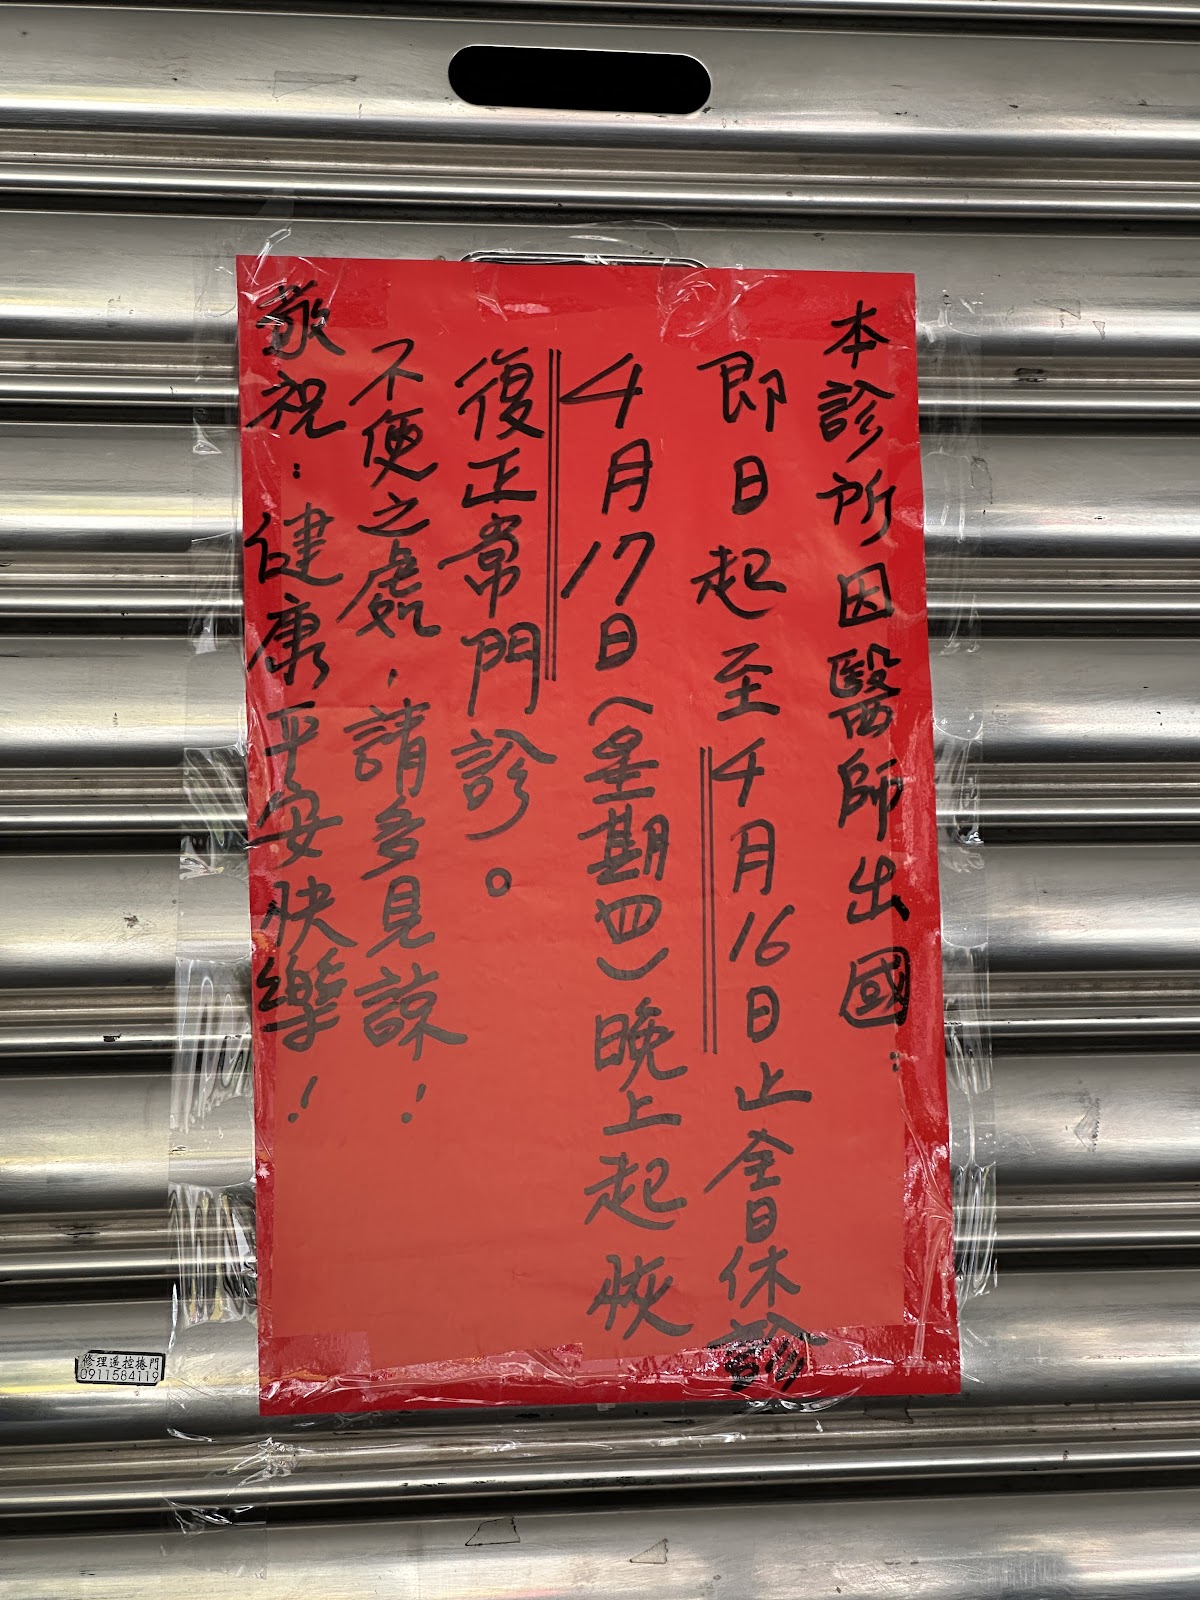 本診所因醫師出國：
即日起至4月16日止全日休診
4月17日(星期四)晚上起恢
復正常門診。
不便之處，請多見諒！
敬祝：健康平安快樂！
修理遙控捲門
0911584119